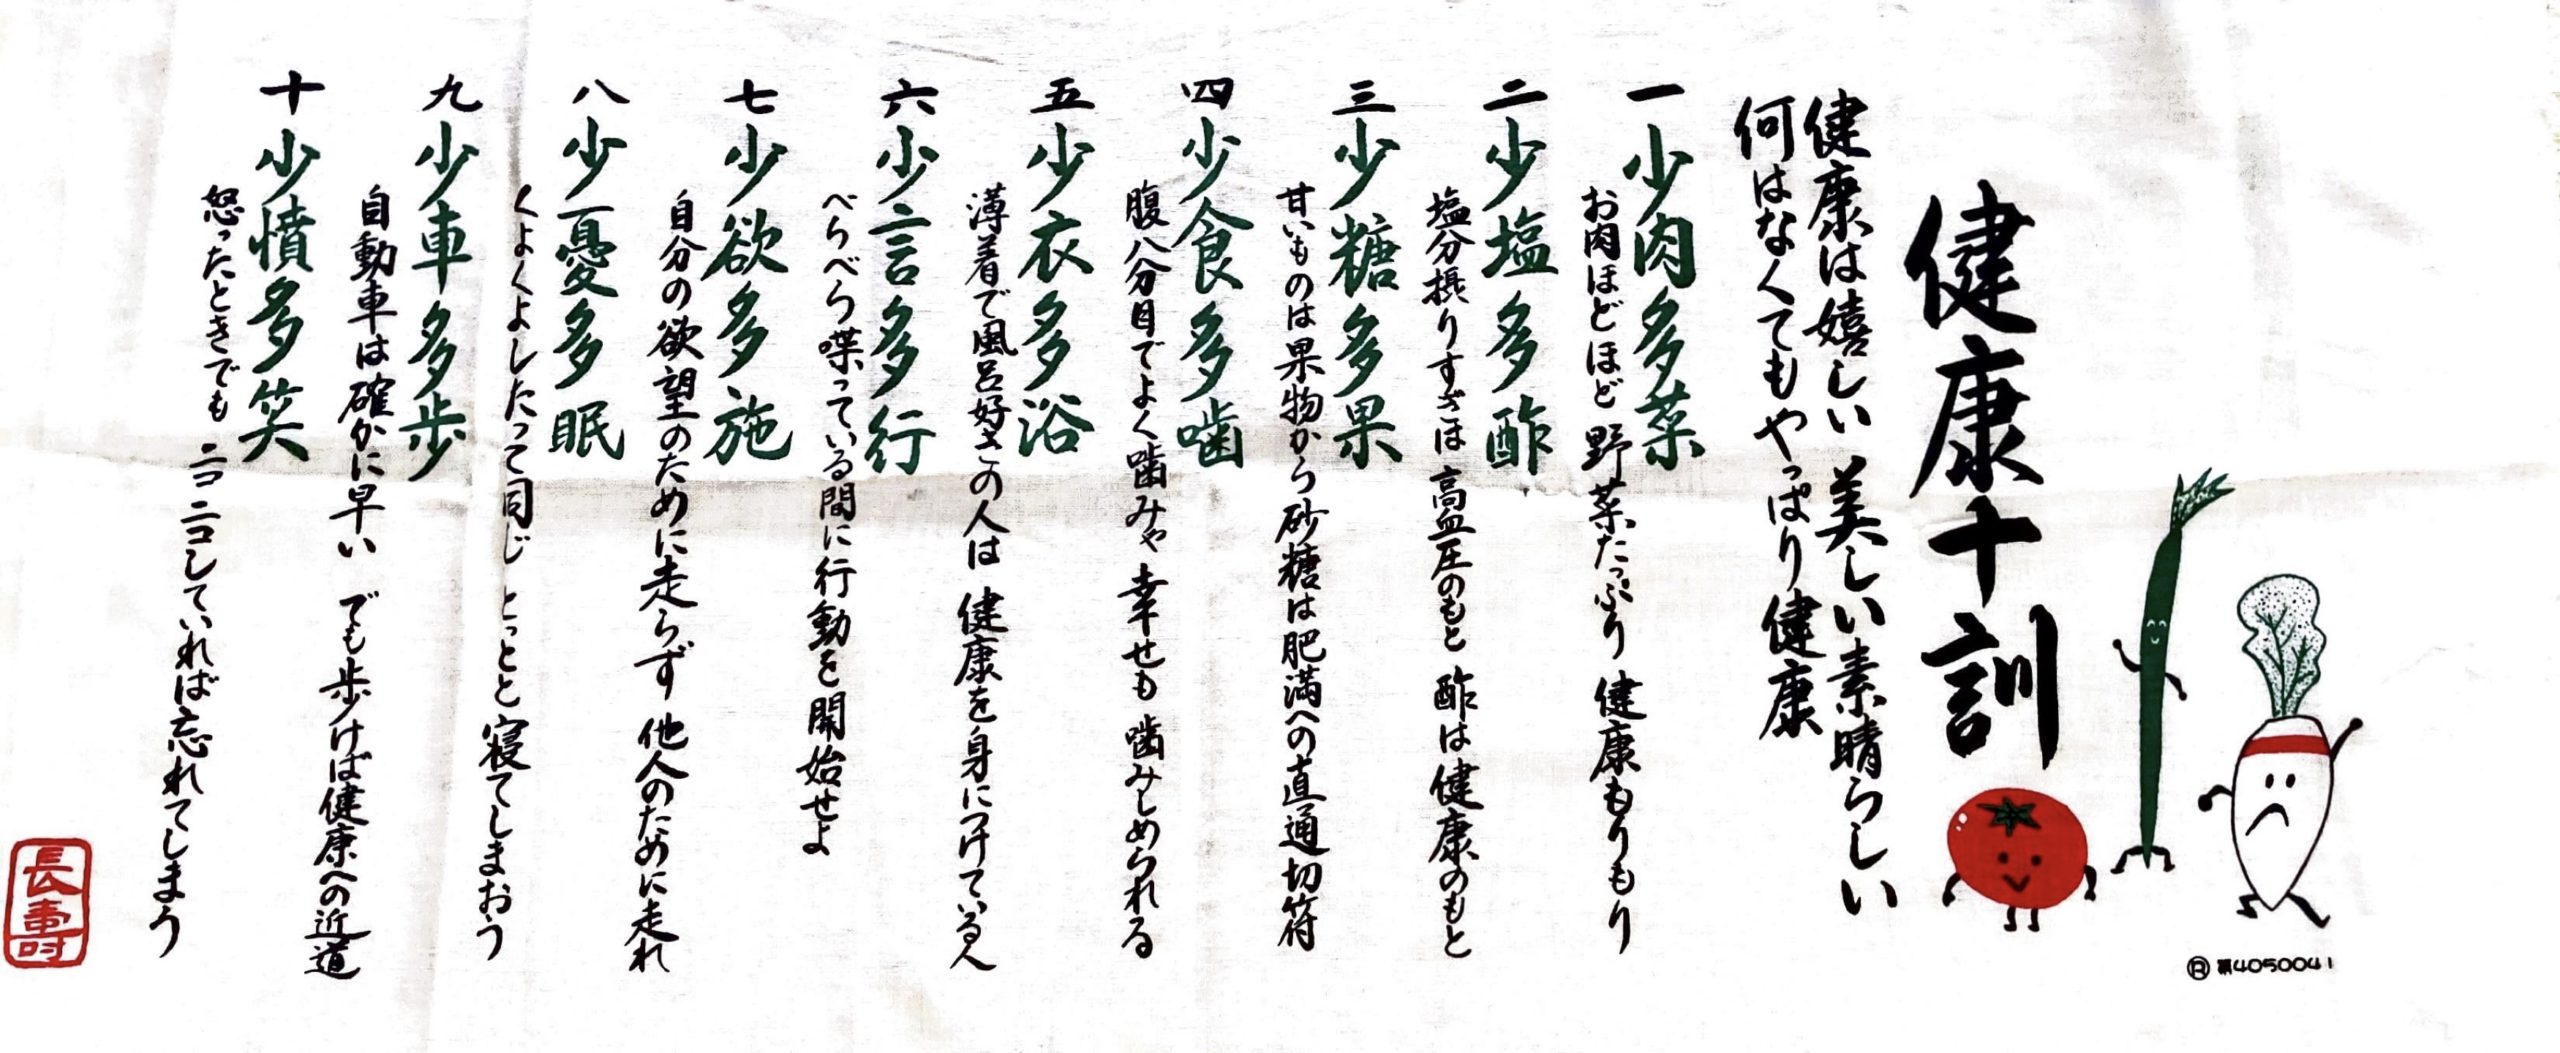 健康十訓
健康は嬉しい 美しい 素晴らしい
何はなくてもやっぱり健康
一 少肉多菜
お肉ほどほど 野菜たっぷり 健康もりもり
二 少塩多酢
塩分摂りすぎは 高血圧のもと 酢は健康のもと
三 少糖多果
甘いものは果物から 砂糖は肥満への直通切符
四 少食多噛
腹八分目でよく噛みゃ 幸せも 噛みしめられる
五 少衣多浴
薄着で風呂好きの人は 健康を身につけている人
六 少言多行
べらべら喋っている間に行動を開始せよ
七 少欲多施
自分の欲望のために走らず 他人のために走れ
八 少憂多眠
くよくよしたって同じ とっとと寝てしまおう
九 少車多歩
自動車は確かに早い でも歩けば健康への近道
十 少憤多笑
怒ったときでも ニコニコしていれば忘れてしまう
長寿
Ⓡ第4050041